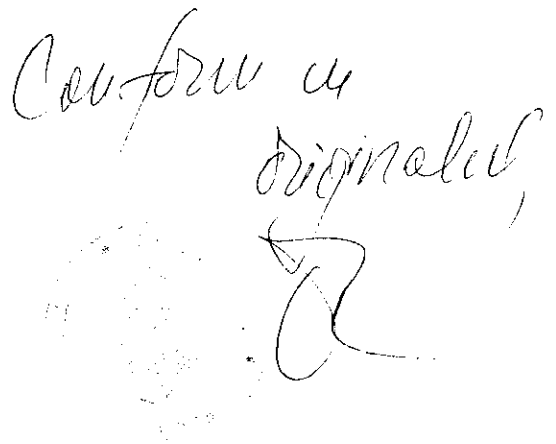 Conform cu
originalul,